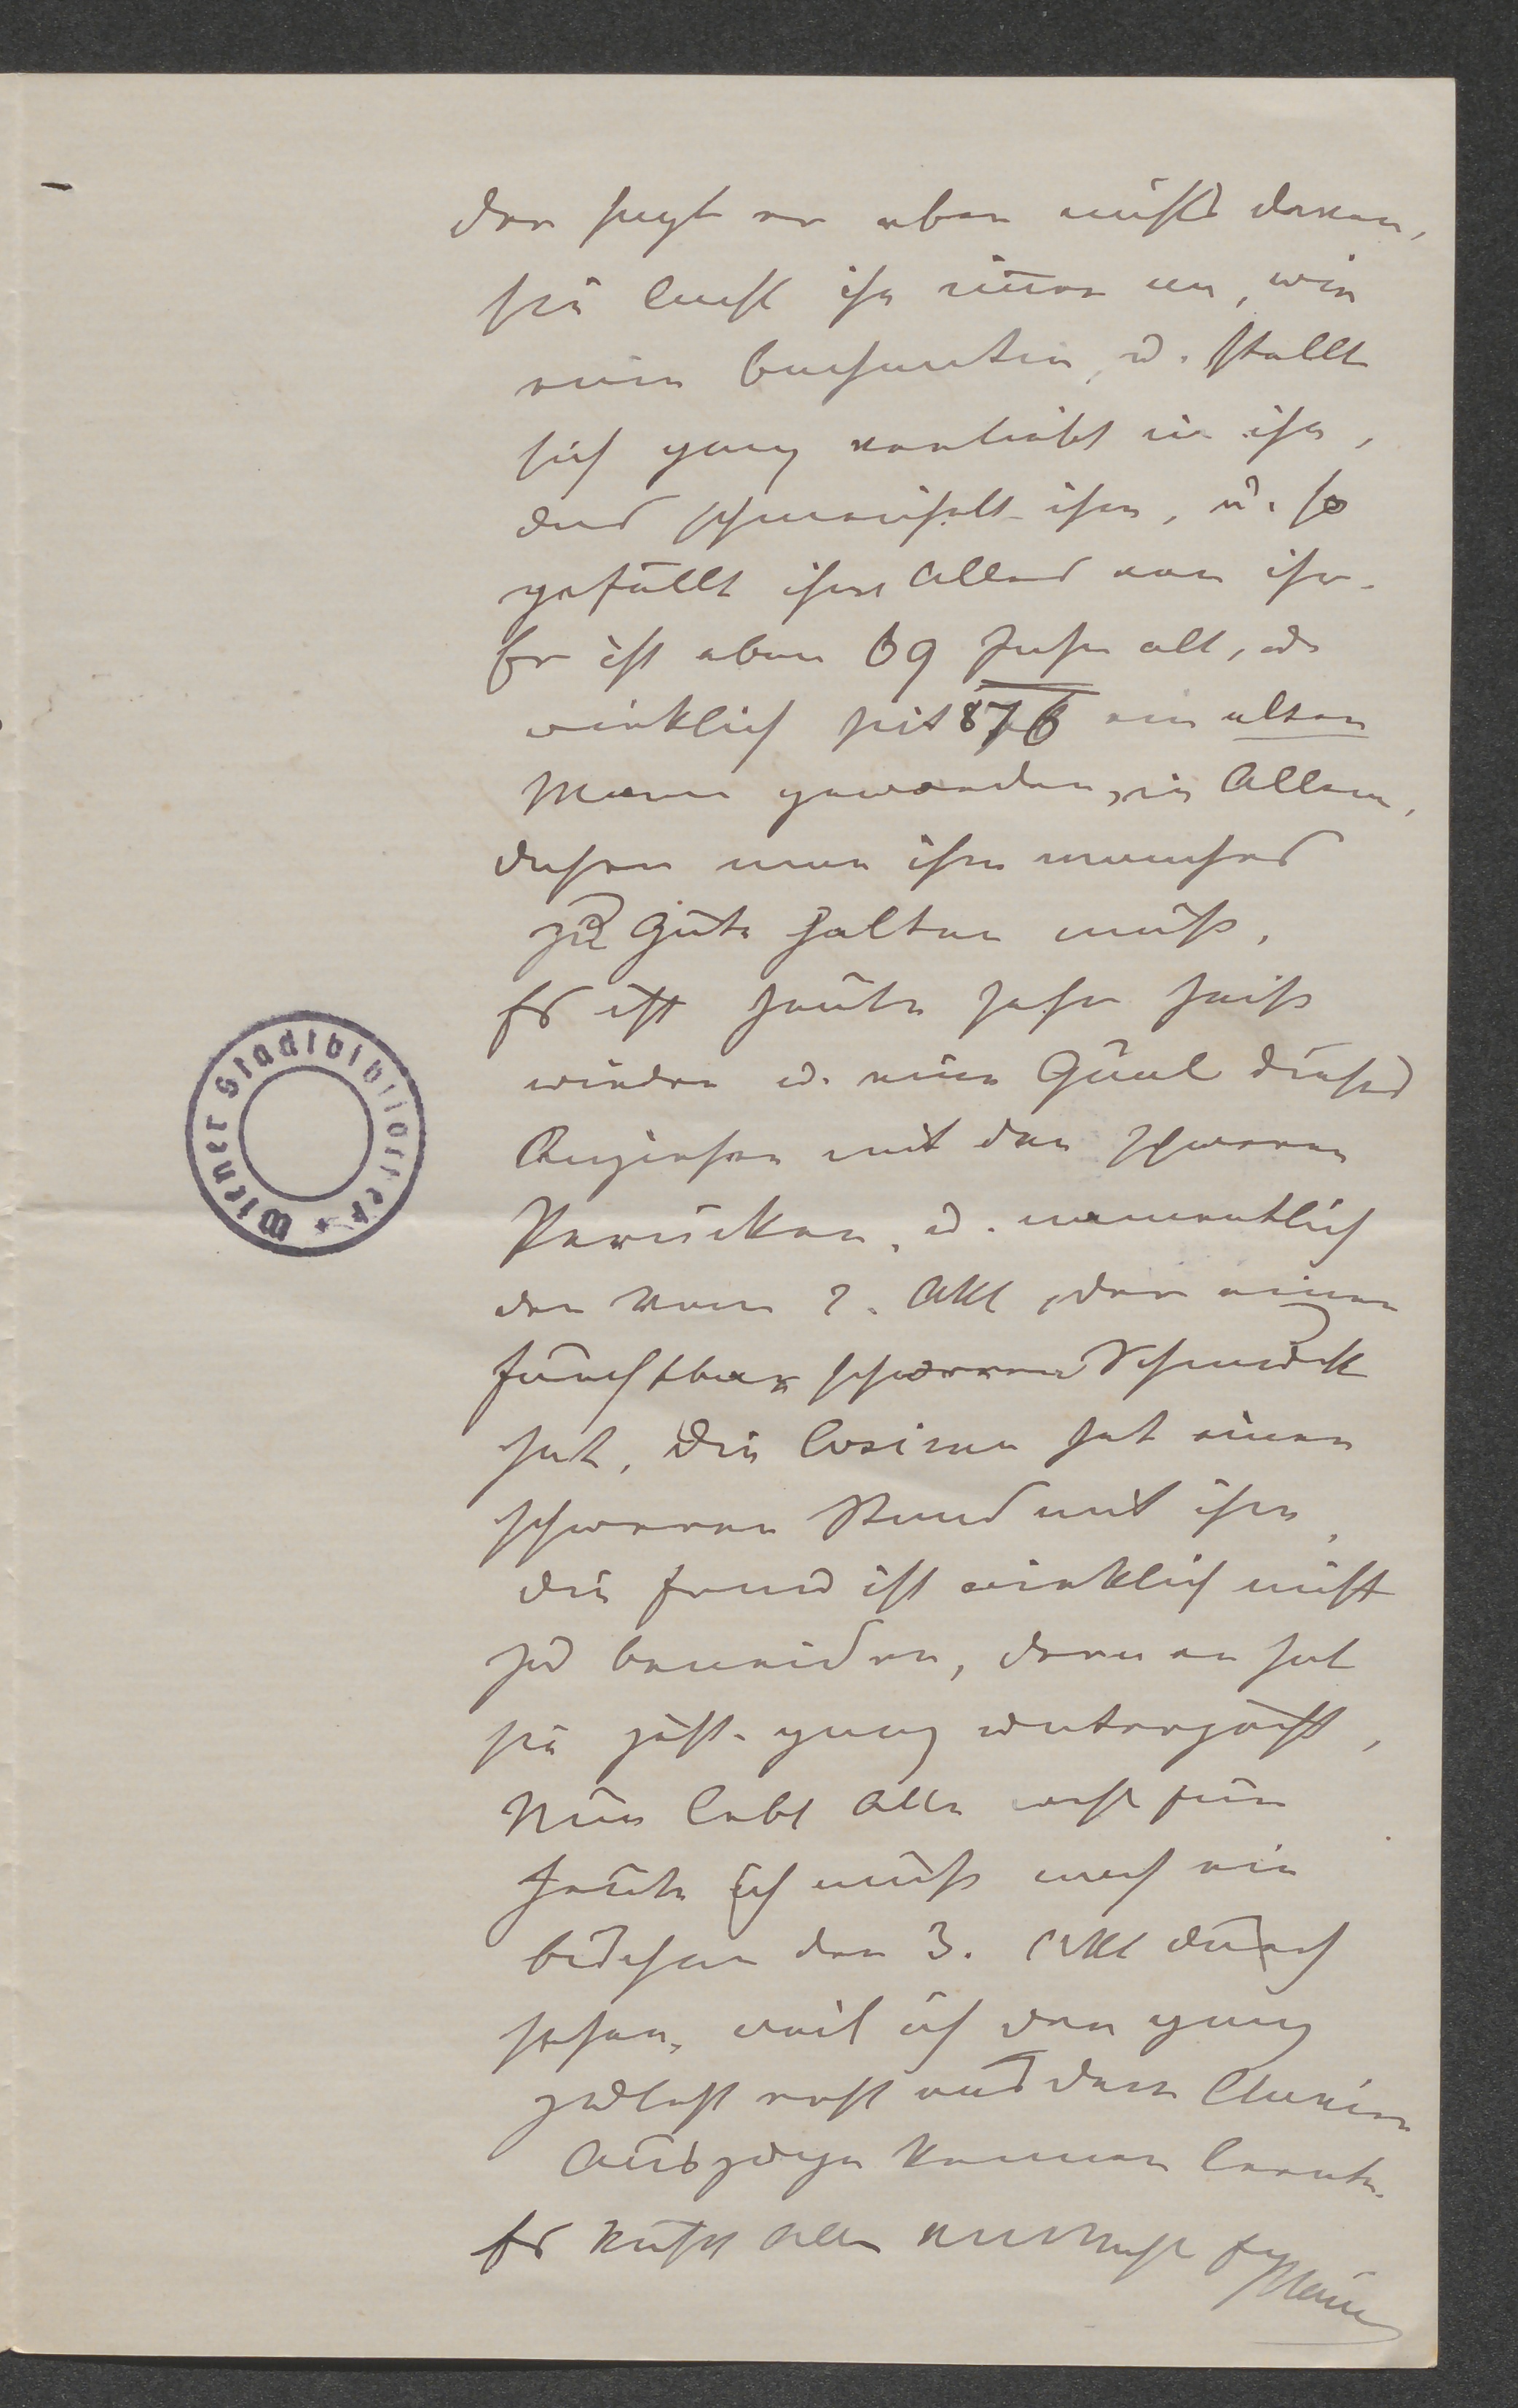 der sagt er aber nichts davon,
sie lacht ihn immer an, wie
eine Bachantin, u. stellt
sich ganz verliebt in ihn,
das schmeichelt ihm, u. so
gefällt ihm Alles von ihr.
Er ist eben 69 Jahr alt, u.
wirklich seit 876 ein alter
Mann geworden, in Allem,
daher man ihm manches
zu Gute halten muß.
Es ist heute sehr heiß
wieder u. eine Qual dieses
Anziehen mit den schweren
Perücken, u. namentlich
der vom 2. Akt, der einen
furchtbar schweren Schmuck
hat. Die Cosima hat einen
schweren Stand mit ihm,
die Frau ist wirklich nicht
zu beneiden, denn er hat
sie ganz
Nun lebt Alle wohl für
heute ich muß noch ein
bischen den 3. Akt durch
sehen, weil ich den ganz
zuletzt erst aus dem Clavier
Auszuge kennen lernte.
Es küßt Alle
Wiener Stadtbibliothek